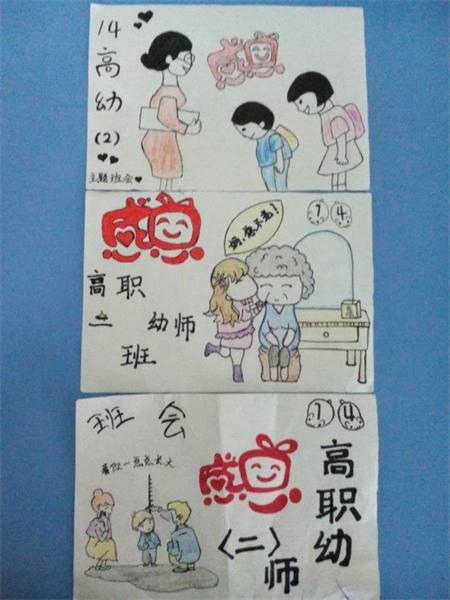 14
高
幼
(2)
主题班会
感恩
感恩
妈,您不老!
14
高职
二 幼师
班
班会
14
看你一点点长大
感恩
高职幼
〈二〉师